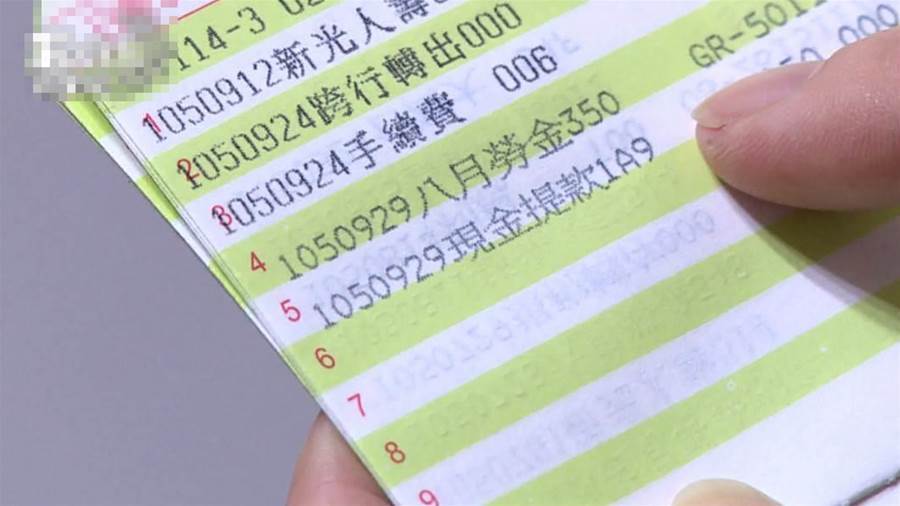 114-3 02
1 1050912新光人壽
2 1050924跨行轉出000 GR-5012
3 1050924手續費 006
4 1050929八月勞金350
5 1050929現金提款1A9
6
7
8
9